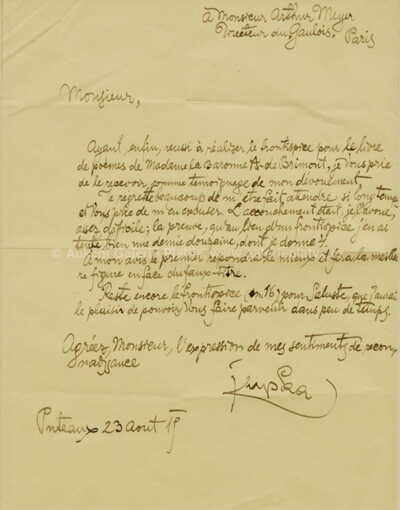 à Monsieur Arthur Meyer
Directeur du Gaulois.
Paris
Monsieur,
Ayant, enfin, reussi à réalizer le frontispice pour le livre
de poèmes de Madame la Baronne A. de Brimont, je Vous prie
de le recevoir, comme témoignage de mon dévouement.
Je regrette beaucoup de m'être fait attendre si longtemps
et Vous prie de m'excuser. L'accouchement était, je l'avoue,
assez difficile; la preuve, qu'au lieu d'un frontispice j'en ai
tenté bien une demie douzaine, dont je donne
A mon avis le premier repondra le mieux et fera la meilleu
re figure en face du faux-titre.
Reste encore le frontispice pour Saluste, que j'aurai
le plaisir de pouvoir Vous faire parvenir dans peu de temps.
Agréez, Monsieur, l'expression de mes sentiments de recon
naissance
Kupka
Puteaux 23 Aout